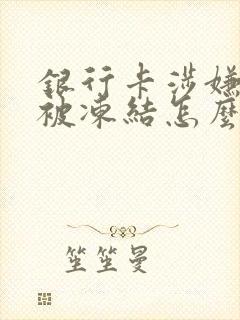 銀行卡涉嫌
被凍結怎麼
笙笙曼